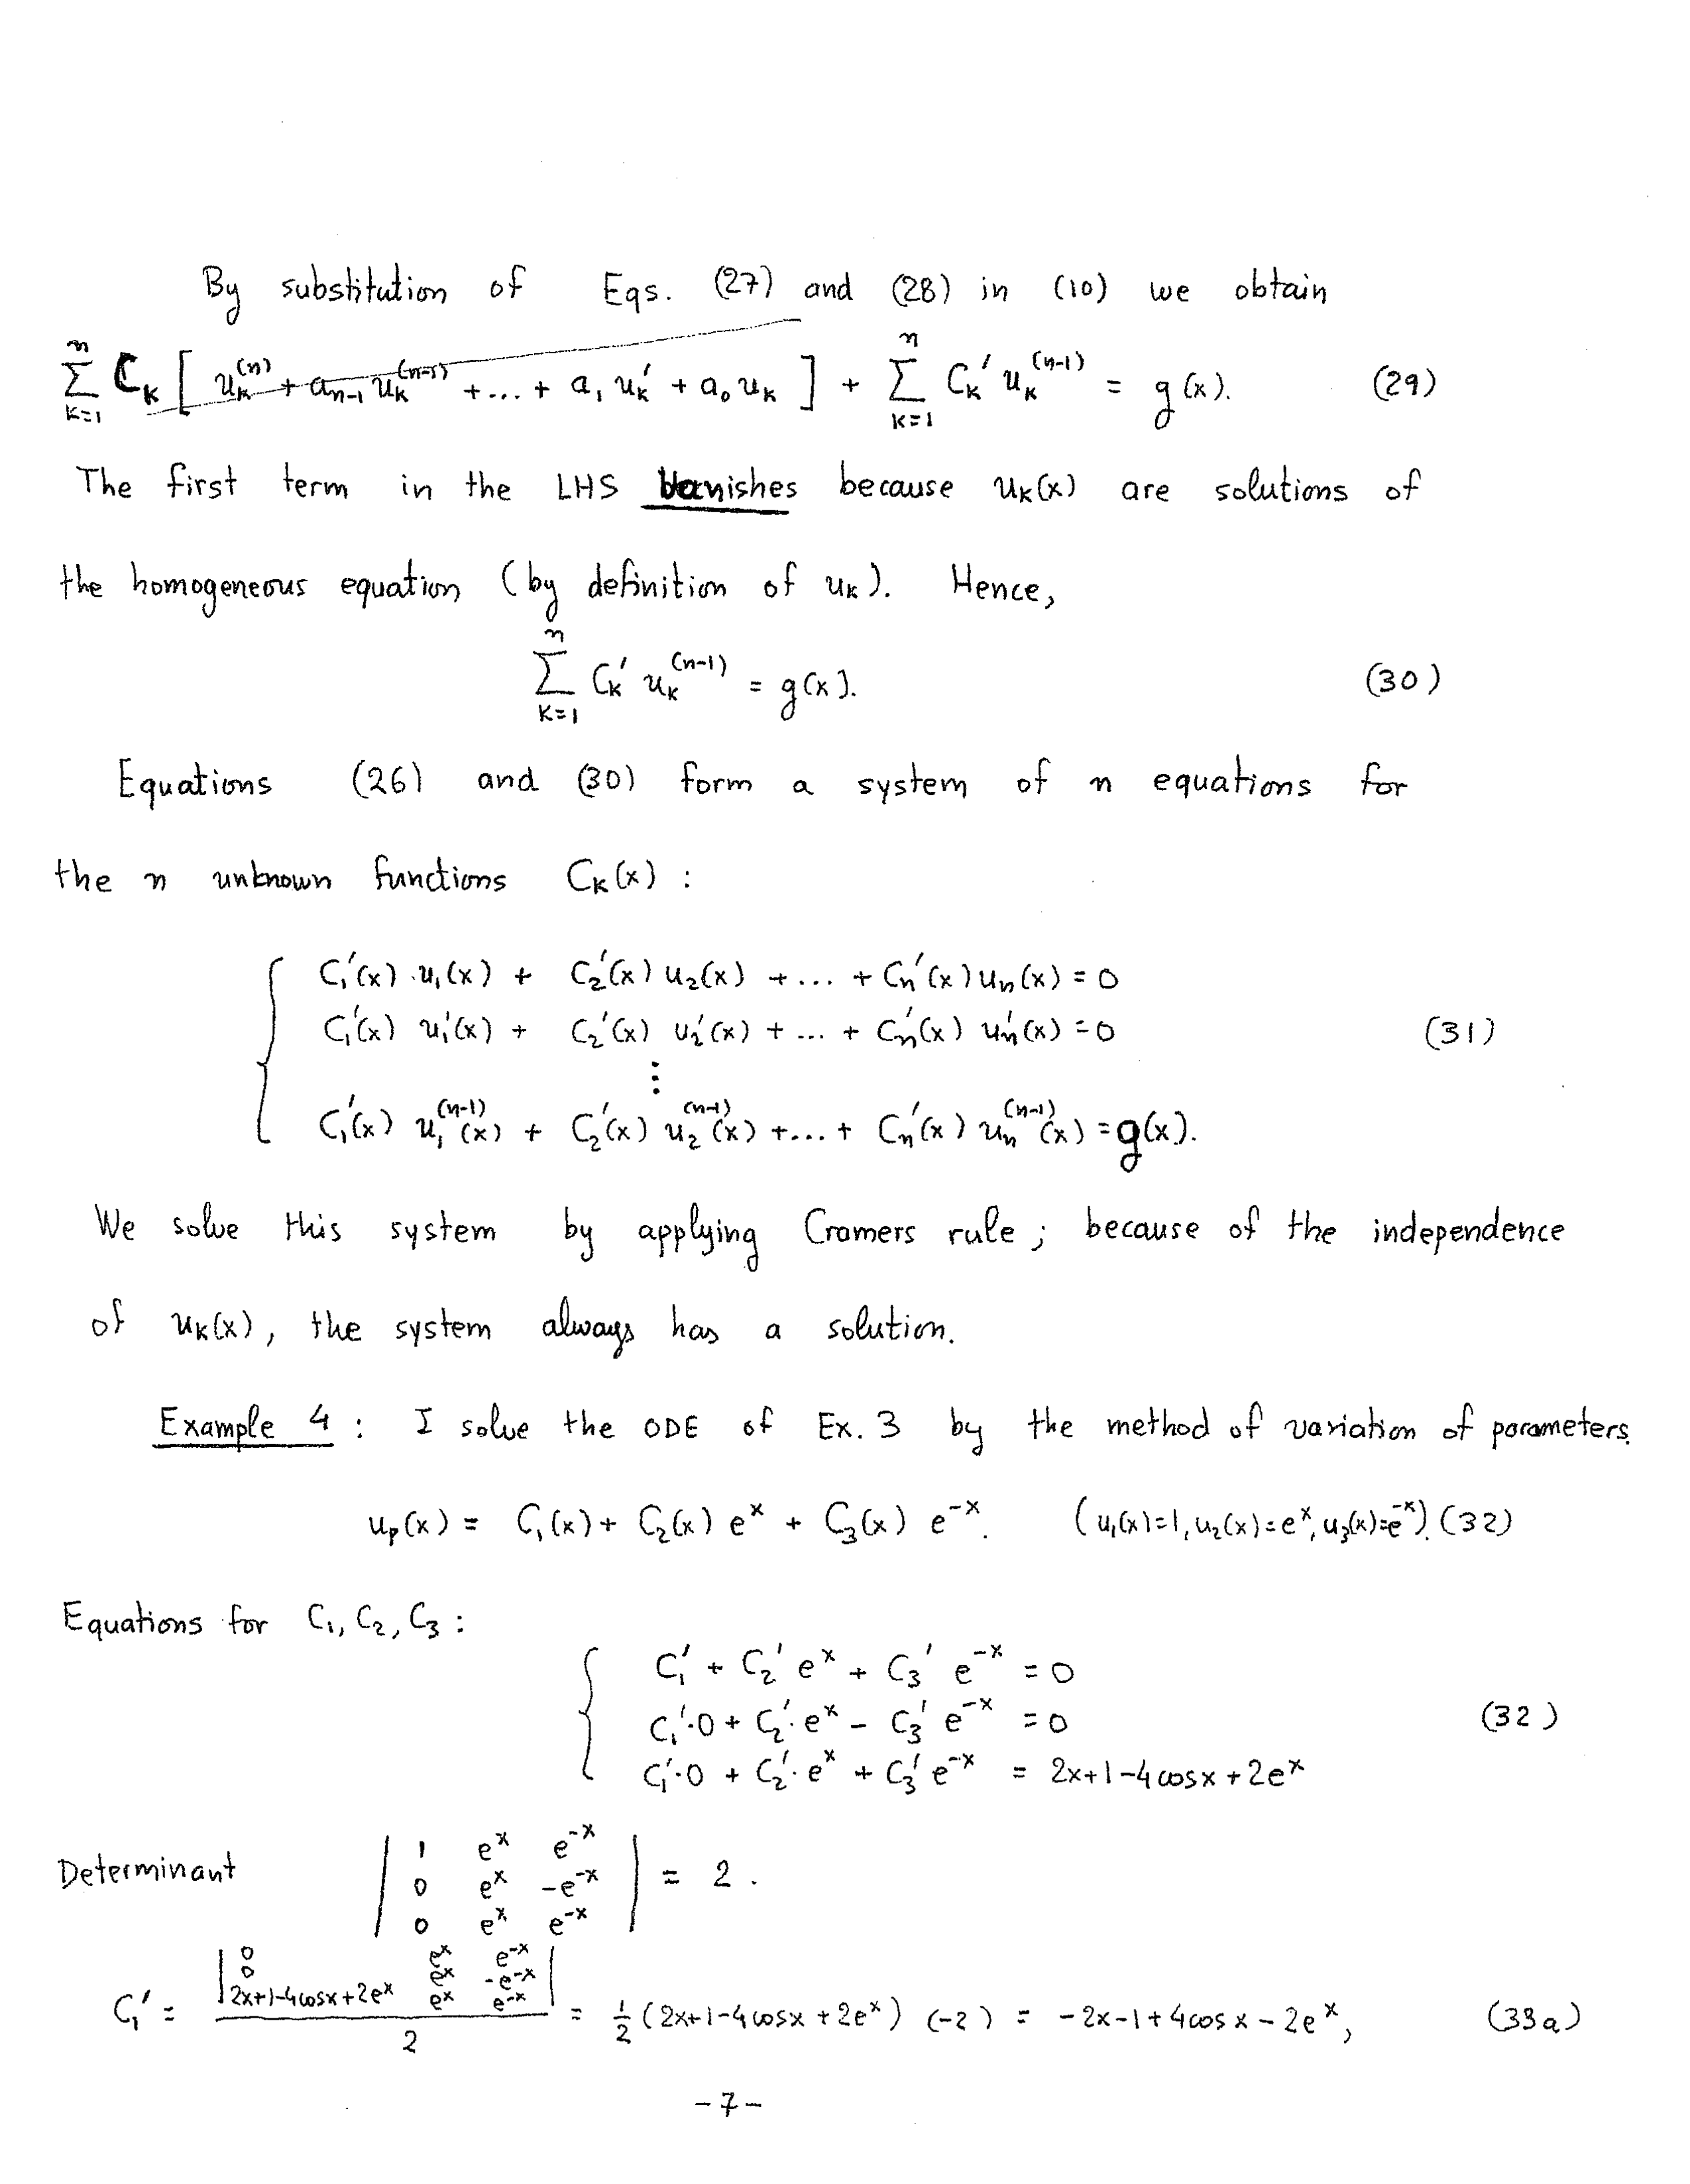 By substitution of Eqs. (27) and (28) in (10) we obtain
∑_{k=1}^{n} C_k [ u_k^{(n)} + a_{n-1} u_k^{(n-1)} + ... + a_1 u_k' + a_0 u_k ] + ∑_{k=1}^{n} C_k' u_k^{(n-1)} = g(x). (29)
The first term in the LHS vanishes because u_k(x) are solutions of
the homogeneous equation (by definition of u_k). Hence,
∑_{k=1}^{n} C_k' u_k^{(n-1)} = g(x). (30)
Equations (26) and (30) form a system of n equations for
the n unknown functions C_k(x) :
C_1'(x) · u_1(x) + C_2'(x) u_2(x) + ... + C_n'(x) u_n(x) = 0
C_1'(x) u_1'(x) + C_2'(x) u_2'(x) + ... + C_n'(x) u_n'(x) = 0 (31)
⋮
C_1'(x) u_1^{(n-1)}(x) + C_2'(x) u_2^{(n-1)}(x) + ... + C_n'(x) u_n^{(n-1)}(x) = g(x).
We solve this system by applying Cramers rule ; because of the independence
of u_k(x), the system always has a solution.
Example 4 : I solve the ODE of Ex. 3 by the method of variation of parameters.
u_p(x) = C_1(x) + C_2(x) e^x + C_3(x) e^{-x}. (u_1(x)=1, u_2(x)=e^x, u_3(x)=e^{-x}). (32)
Equations for C_1, C_2, C_3 :
C_1' + C_2' e^x + C_3' e^{-x} = 0
C_1'·0 + C_2'·e^x - C_3' e^{-x} = 0 (32)
C_1'·0 + C_2'·e^x + C_3' e^{-x} = 2x+1-4cosx+2e^x
Determinant | 1 e^x e^{-x} |
| 0 e^x -e^{-x} | = 2.
| 0 e^x e^{-x} |
| 0 e^x e^{-x} |
| 0 e^x -e^{-x} |
| 2x+1-4cosx+2e^x e^x e^{-x} |
C_1' = / 2 = 1/2 (2x+1-4cosx+2e^x) (-2) = -2x-1+4cosx-2e^x, (33a)
-7-